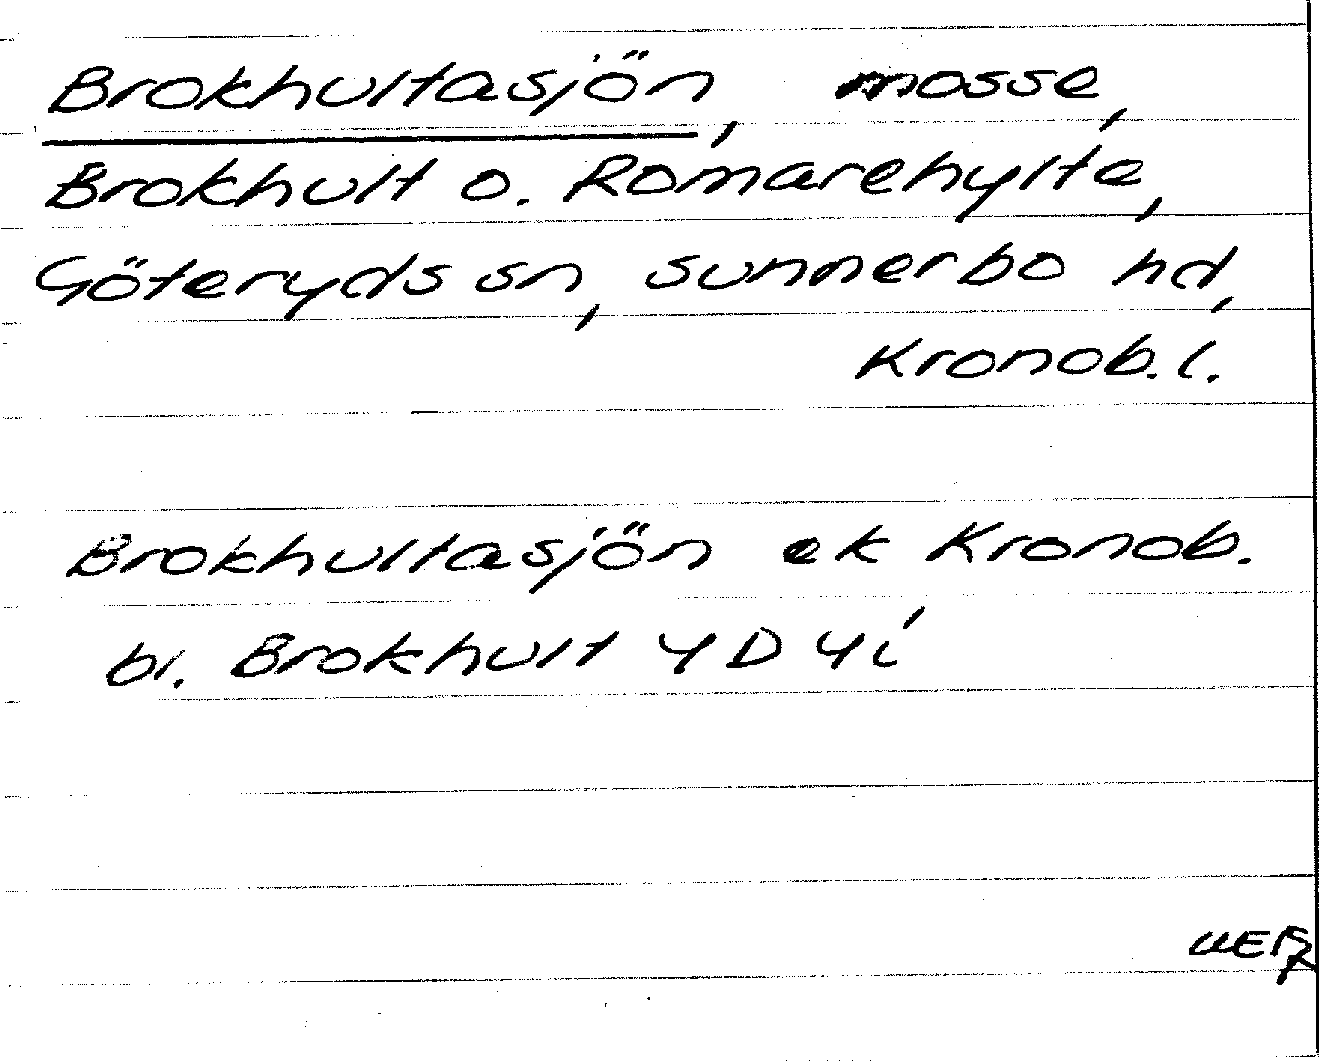 Brokhultasjön, mosse,
Brokhult o. Romarehylte,
Göteryds sn, Sunnerbo hd,
Kronob. l.
Brokhultasjön ek Kronob.
bl. Brokhult 4D 4i